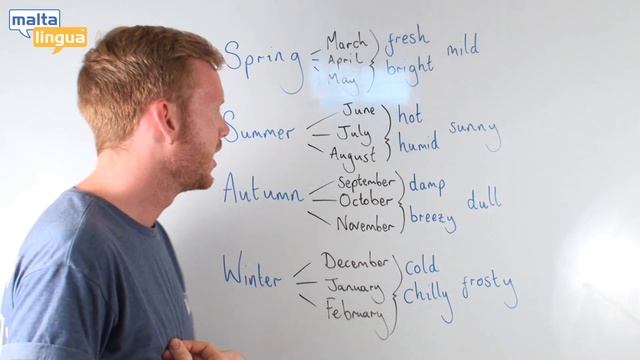 malta
lingua
Spring March fresh mild
April bright
May
Summer June hot sunny
July humid
August
Autumn September damp dull
October breezy
November
Winter December cold
January chilly frosty
February